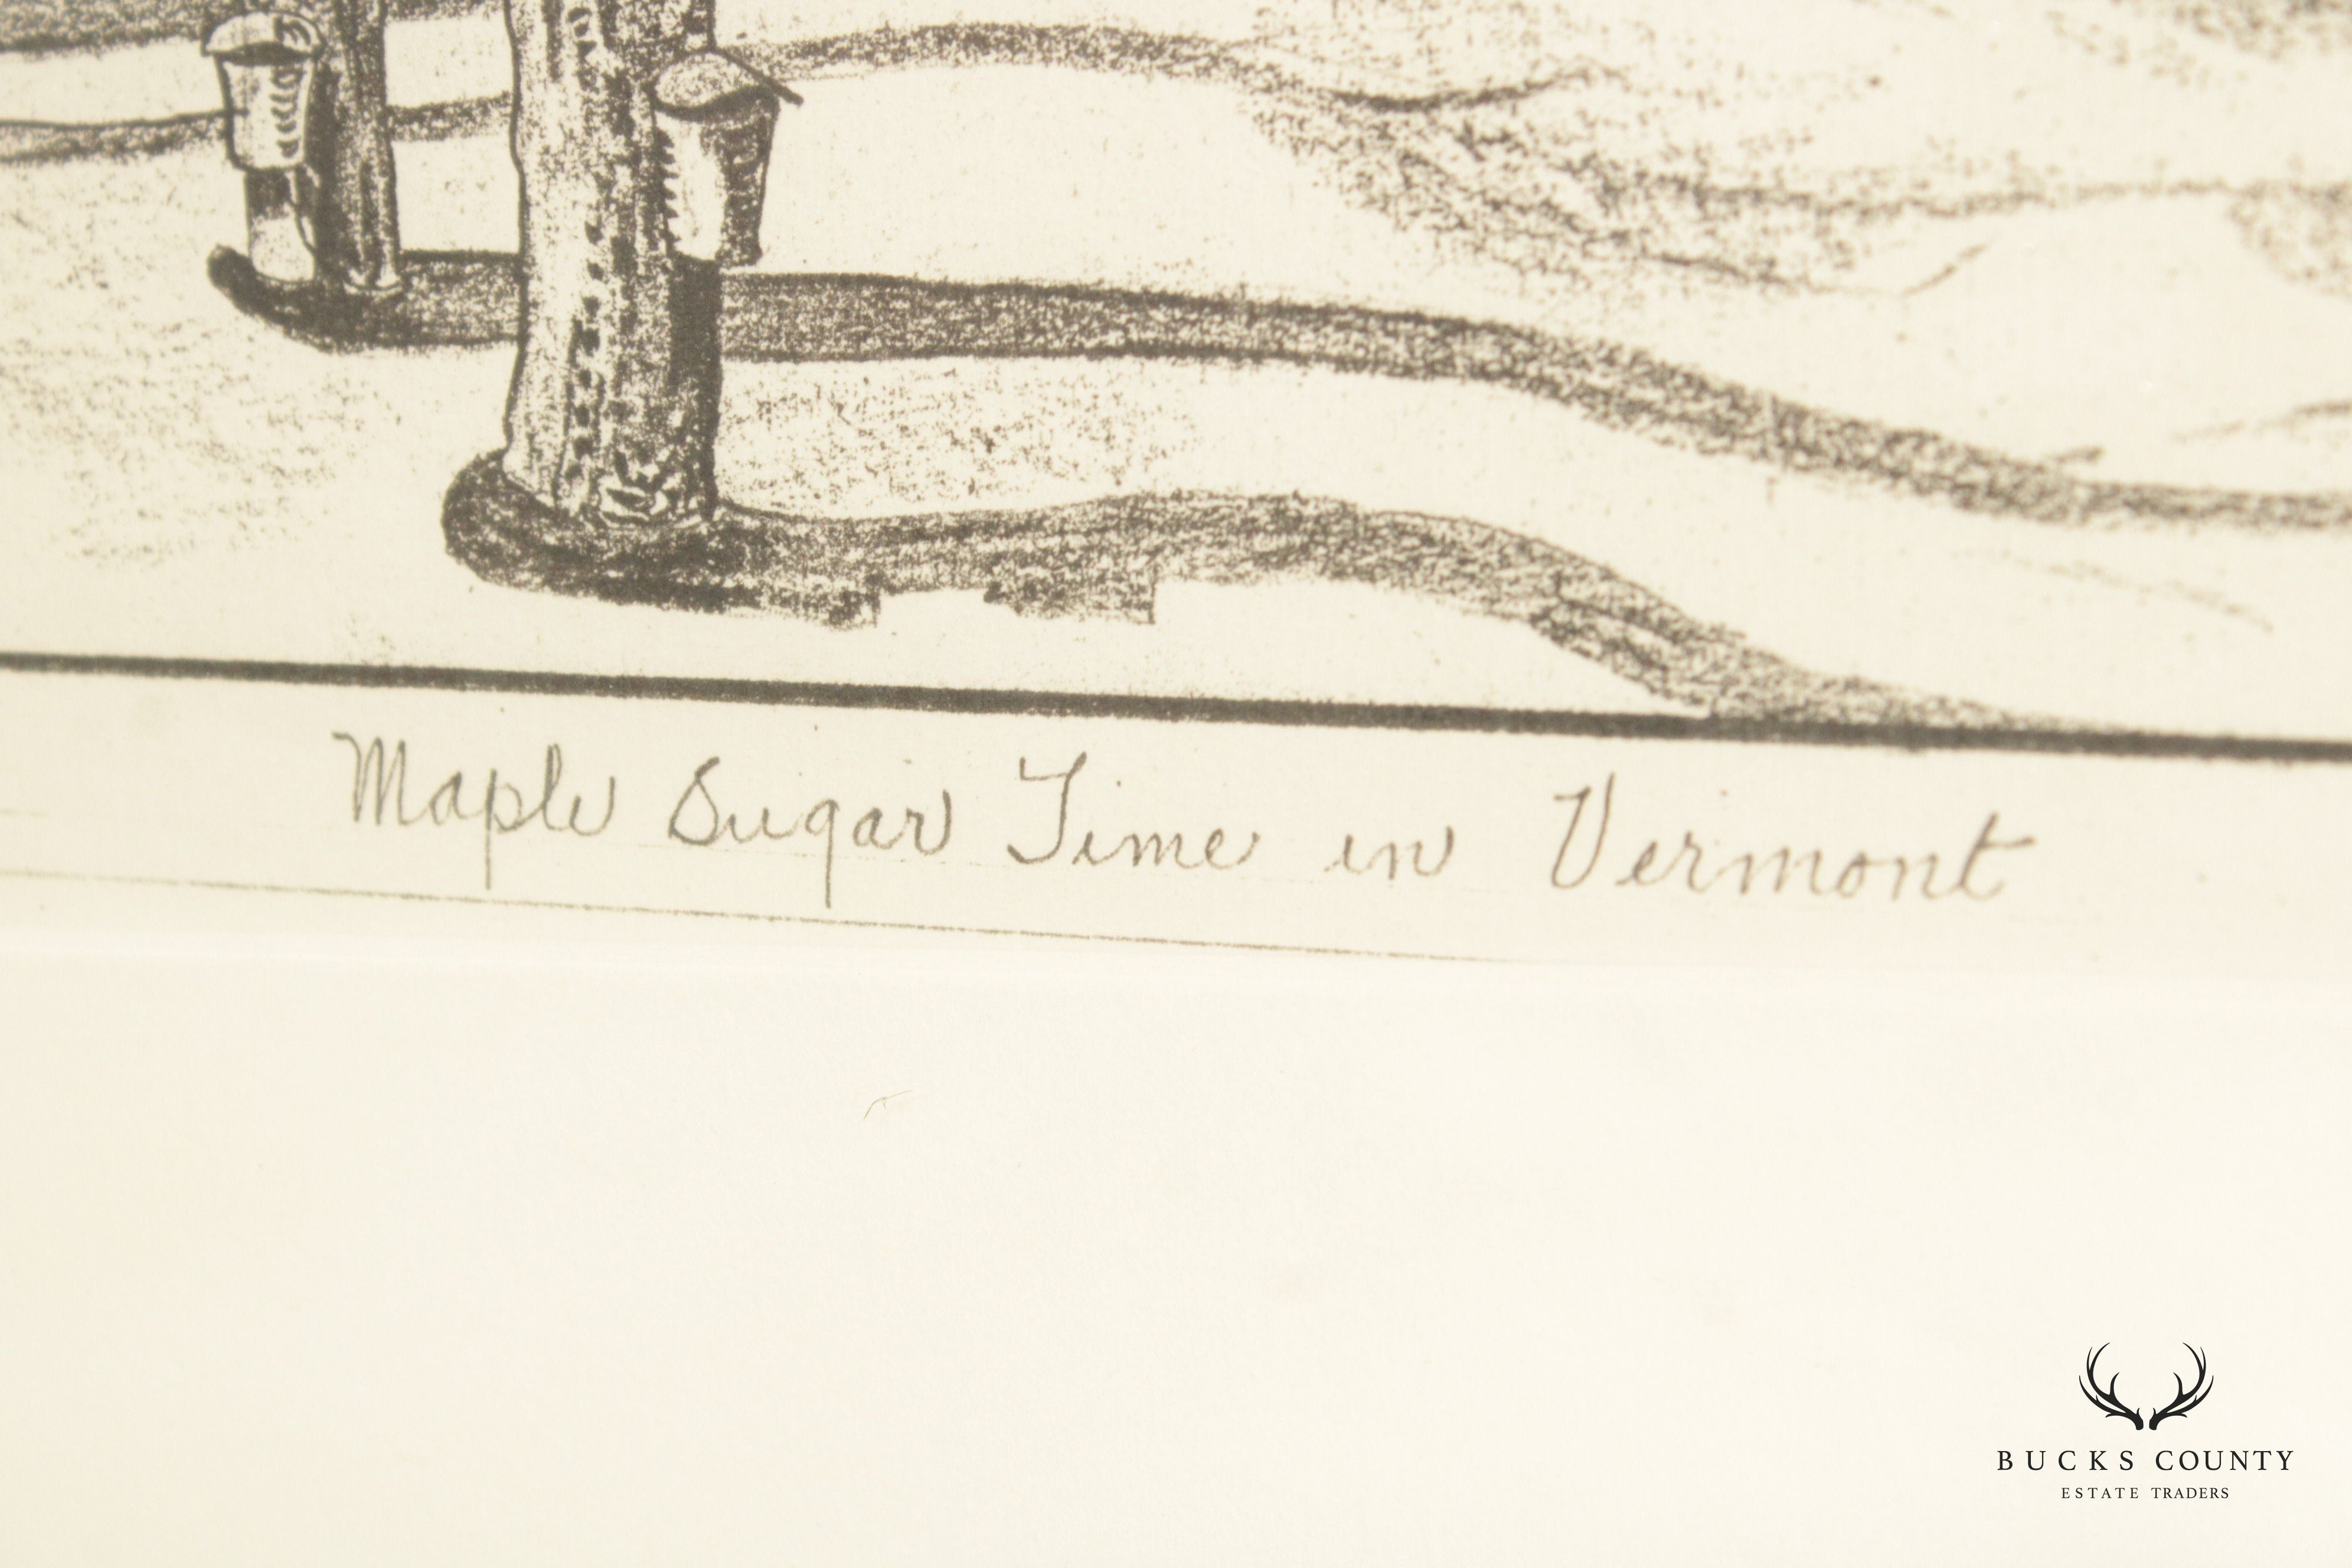 Maple Sugar Time in Vermont
BUCKS COUNTY
ESTATE TRADERS